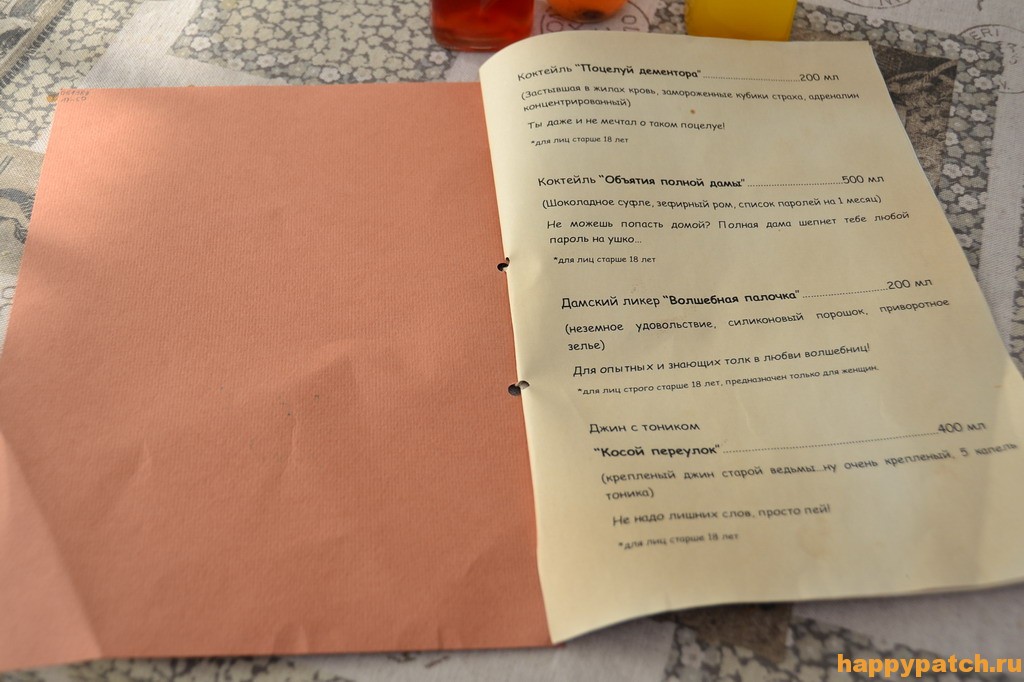 Коктейль "Поцелуй дементора"..............................200 мл
(Застывшая в жилах кровь, замороженные кубики страха, адреналин
концентрированный)
Ты даже и не мечтал о таком поцелуе!
*для лиц старше 18 лет
Коктейль "Объятия полной дамы"..............................500 мл
(Шоколадное суфле, зефирный ром, список паролей на 1 месяц)
Не можешь попасть домой? Полная дама шепнет тебе любой
пароль на ушко...
*для лиц старше 18 лет
Дамский ликер "Волшебная палочка"..........................200 мл
(неземное удовольствие, силиконовый порошок, приворотное
зелье)
Для опытных и знающих толк в любви волшебниц!
*для лиц строго старше 18 лет, предназначен только для женщин.
Джин с тоником
"Косой переулок"............................................................400 мл
(крепленый джин старой ведьмы...ну очень крепленый, 5 капель
тоника)
Не надо лишних слов, просто пей!
*для лиц старше 18 лет
happypatch.ru